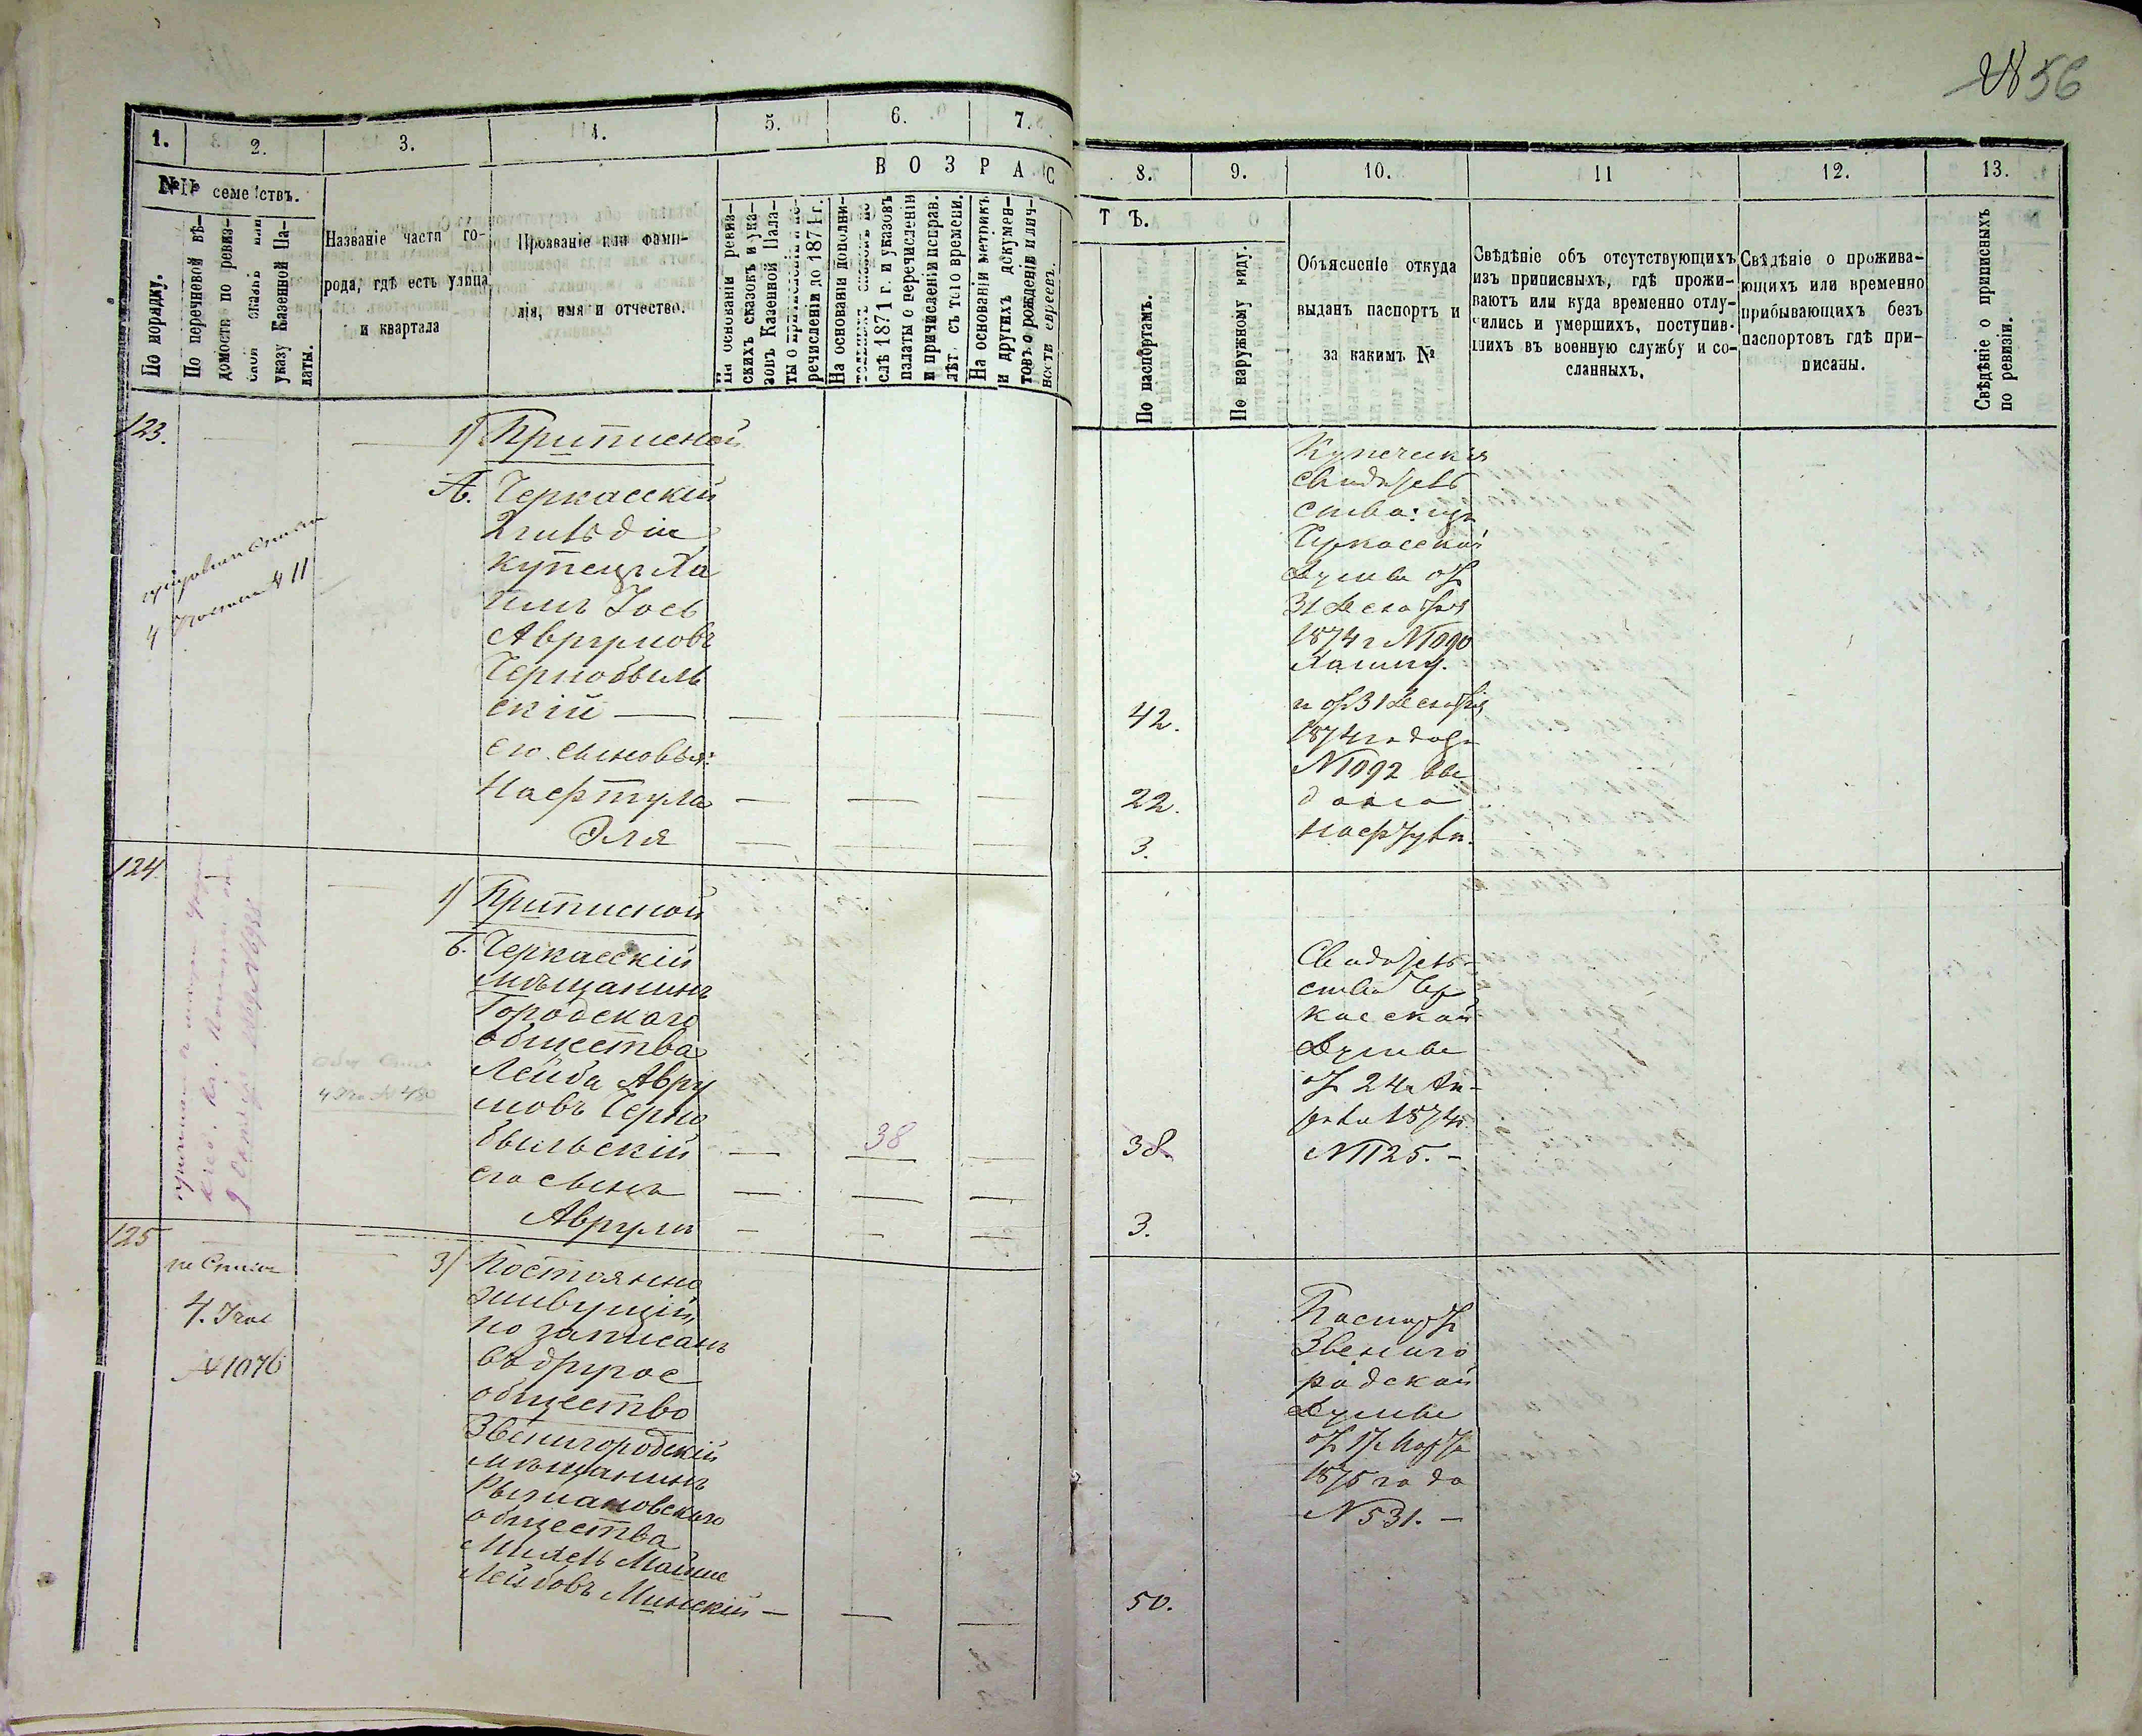 56
1.
2.
3.
4.
5.
6.
7.
8.
9.
10.
11
12.
13.
В О З Р А С
Т Ъ.
№№ семействъ.
По порядку.
По перечневой вѣ-
домости по ревиз-
ской сказкѣ или
указу Казенной Па-
латы.
Названіе части го-
рода, гдѣ есть улица
и квартала
Прозваніе или фами-
лія, имя и отчество.
На основаніи ревиз-
скихъ сказокъ и ука-
зовъ Казенной Пала-
ты о
речисленіи до 1871 г.
На основаніи дополни-
слѣ 1871 г. и указовъ
палаты о перечисленіи
и причисленіи исправ.
лѣт. съ того времени.
На основаніи метрикъ
и другихъ докумен-
товъ о рожденіи и лич-
ности евреевъ.
По паспортамъ.
По наружному виду.
Объясненіе откуда
выданъ паспортъ и
за какимъ №
Свѣдѣніе объ отсутствующихъ
изъ приписныхъ, гдѣ прожи-
ваютъ или куда временно отлу-
чились и умершихъ, поступив-
шихъ въ военную службу и со-
сланныхъ.
Свѣдѣніе о прожива-
ющихъ или временно
прибывающихъ безъ
паспортовъ гдѣ при-
писаны.
Свѣдѣніе о приписныхъ
по ревизіи.
123.
4 № 11
1) Приписной
А. Черкасскій
2 гильдіи
купецъ Ха
имъ Іось
Аврумовъ
Чернобыль
скій —
его сыновья:
Нафтула
Эля
42.
22.
3.
Купеческія
свидѣтель
ства: изъ
Черкасской
Думы от
31 Декабря
1874 г № 1090
Хаиму.
и от 31 Декабря
1874 года
№ 1092 вы
дано
Нафтули.
124.
1) Приписной
Б. Черкасскій
мѣщанинъ
Городскаго
общества
Лейба Авру
мовъ Черно
быльскій
его сынъ
Аврумъ
4 № 480
38
38.
3.
Свидѣтель-
ство Чер
касской
Думы
от 24 Ап-
реля 1874 г.
№ 1125. -
125
по Списк
4.
№ 1076
3) Постоянно
живущій
но записанъ
въ другое
общество
Звенигородскій
мѣщанинъ
Рыжановскаго
общества
Михель Майше
Лейбовъ Минскій —
50.
Паспорт
Звениго
родской
Думы
от 17 Марта
1875 года
№ 531. —